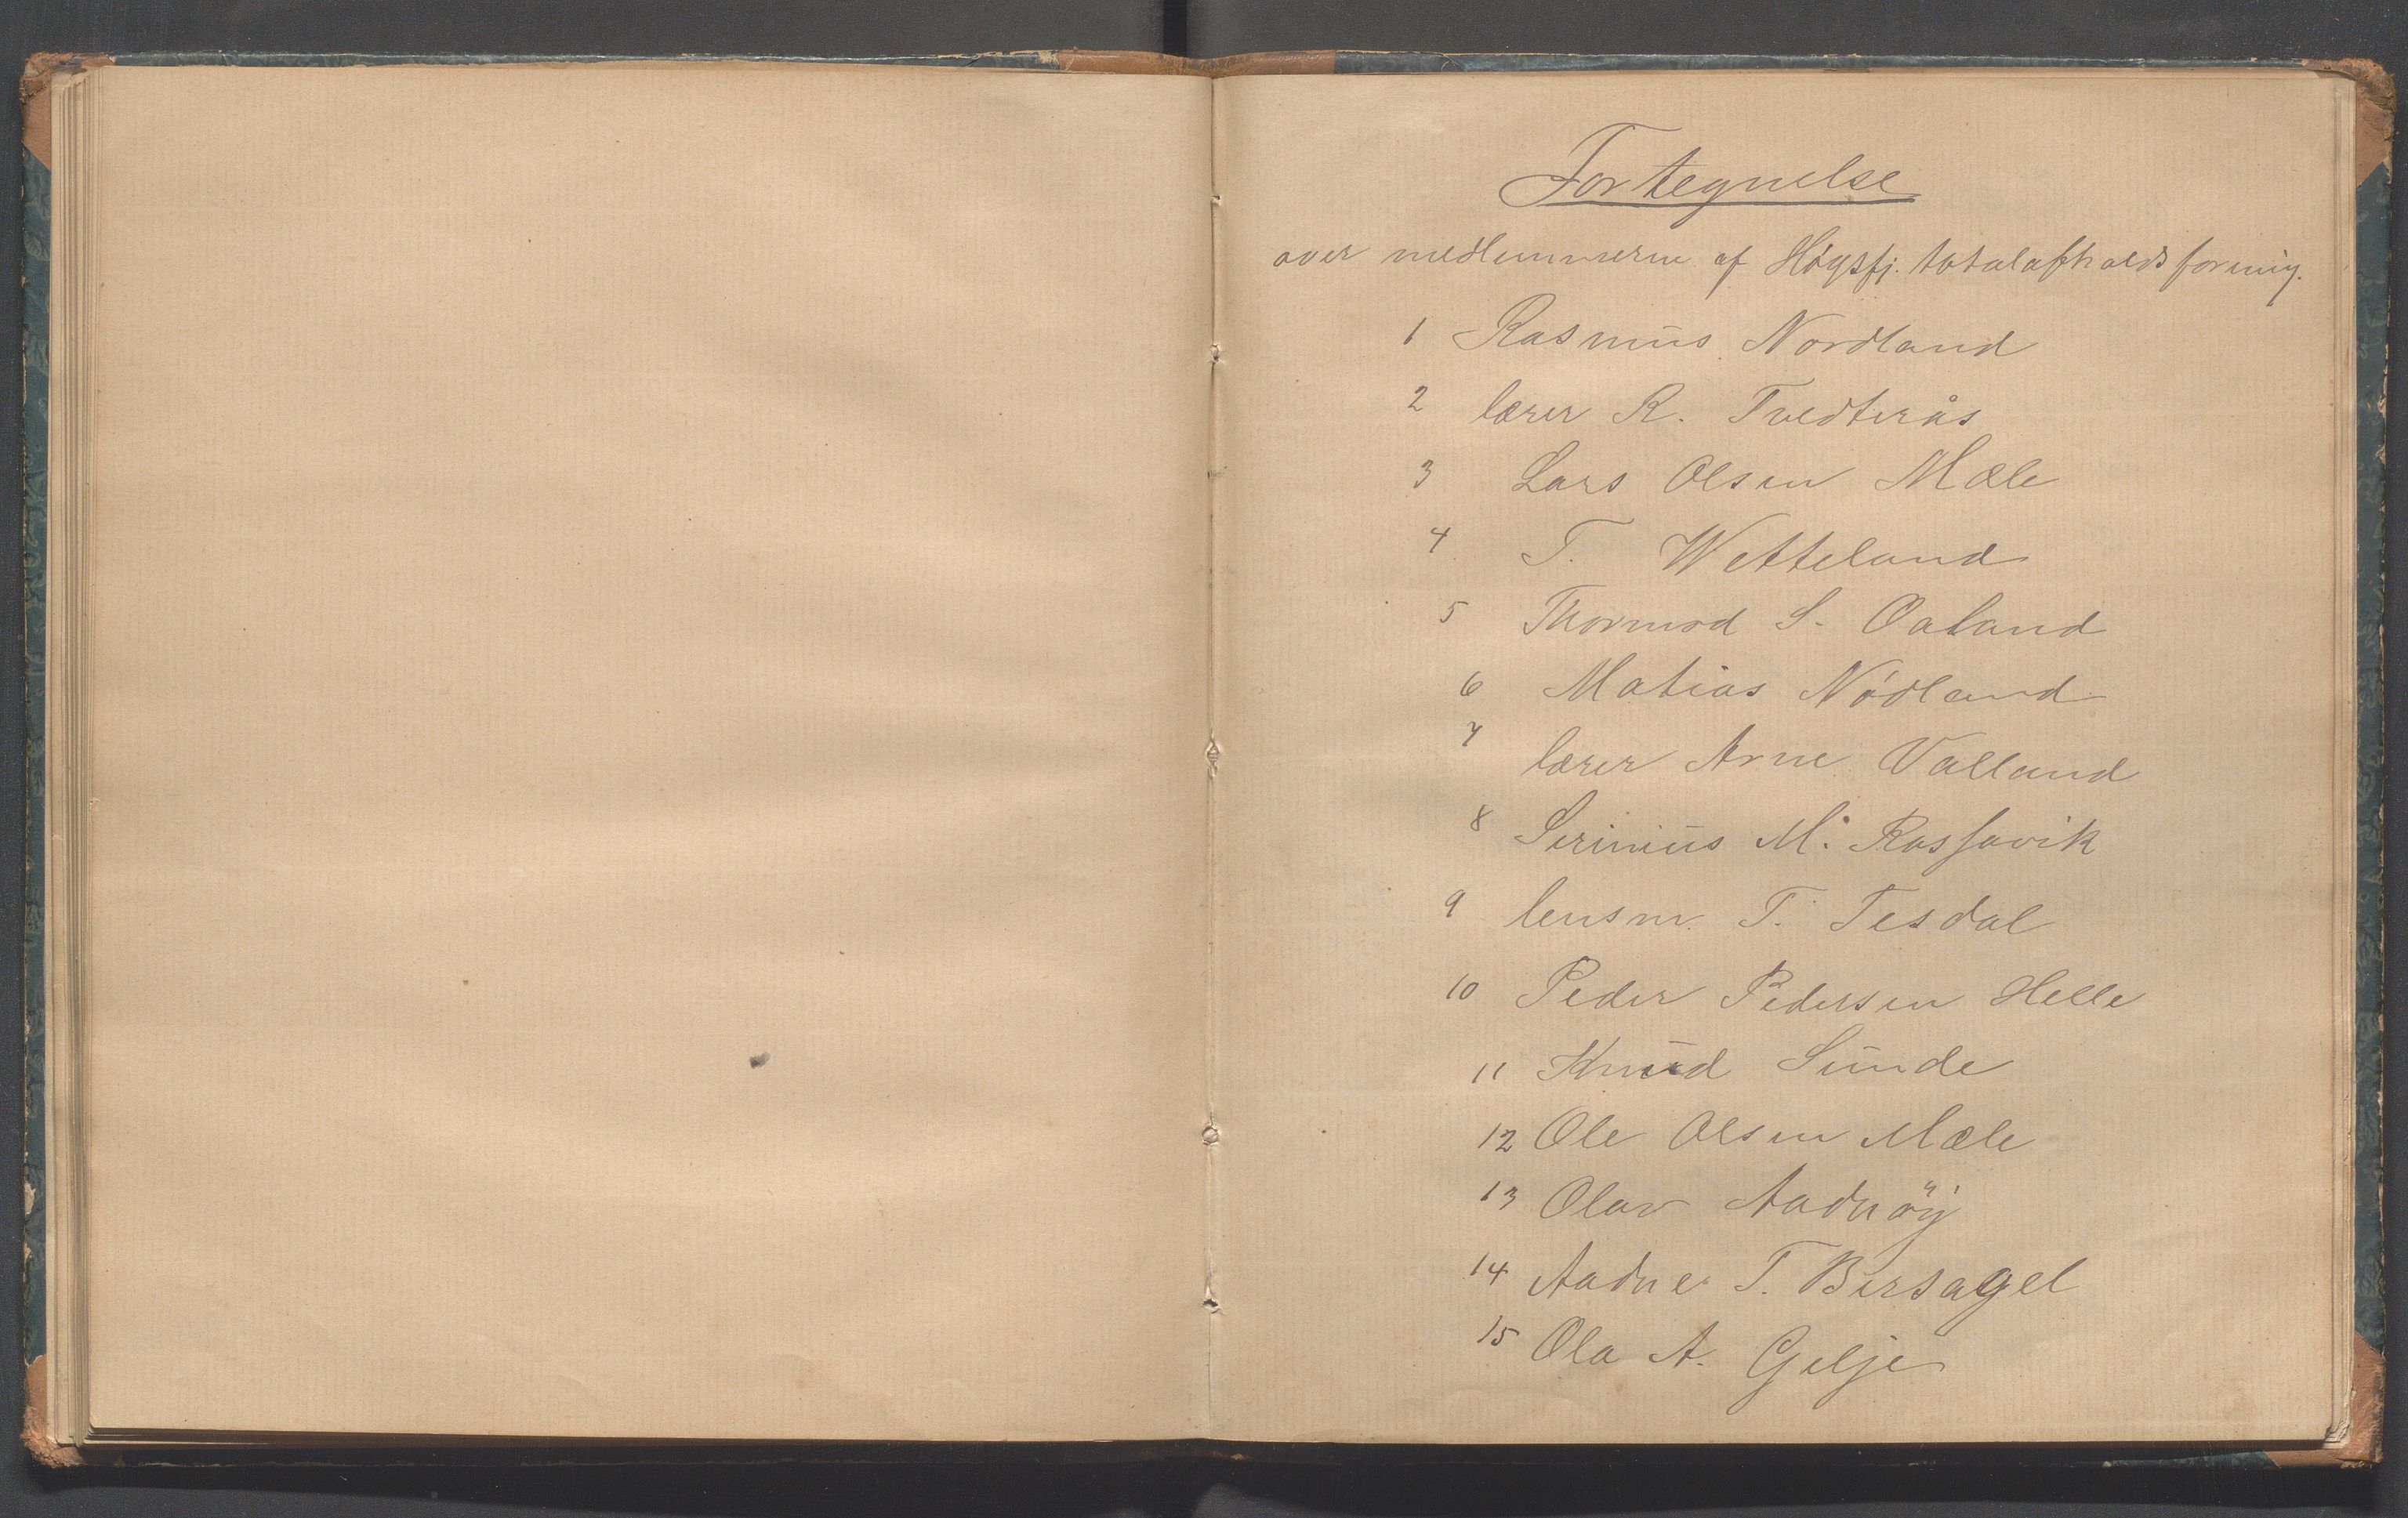 Fortegnelse
over medlemmerne af Høgsfj. totalafholdsforning.
1 Rasmus Nordland
2 lærer R. Tvedterås
3 Lars Olsen Mæle
4 T. Wetteland
5 Thormod S. Oaland
6 Matias Nødland
7 lærer Arne Valland
8 Serinius M. Rossavik
9 lensm. T. Tesdal
10 Peder Pedersen Helle
11 Knud Sunde
12 Ole Olsen Mæle
13 Olav Aadnöy
14 Aadne T. Bersagel
15 Ola A. Gilje